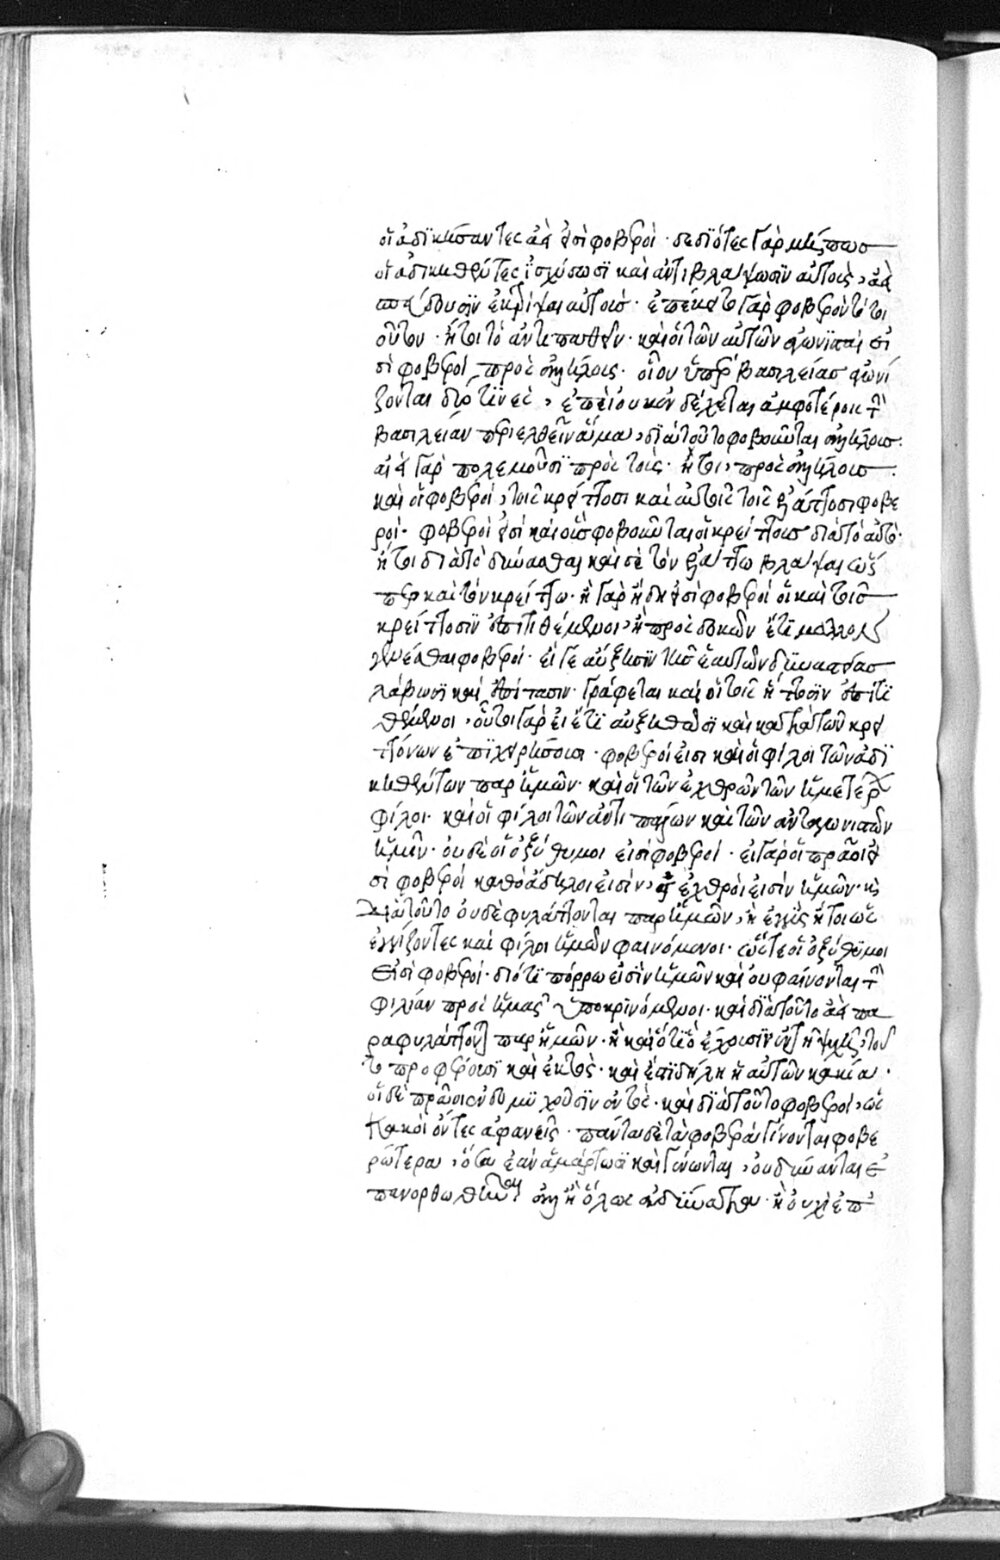 οἱ ἀδικήσαντες ἀεὶ εἰσὶ φοβεροί · δεδιότες γὰρ μήπως
οἱ ἀδικηθέντες ἰσχύσωσι καὶ ἀντιβλάψωσιν αὐτοὺς, ἀεὶ
αὐτούς · ἐπέκειτο γὰρ φοβερὸν τὸ τοι
οῦτον · ἤτοι τὸ ἀντιπαθεῖν · καὶ οἱ τῶν αὐτῶν ἀγωνισταὶ εἰ
σὶ φοβεροὶ πρὸς ἀλλήλους · οἷον ὑπὲρ βασιλείας ἀγωνί
ζονται δύο τινὲς, ἐπεὶ οὐκ ἐνδέχεται ἀμφοτέροις τὴν
βασιλείαν περιελθεῖν ἅμα, διὰ τοῦτο φοβοῦνται ἀλλήλους ·
ἀεὶ γὰρ πολεμοῦσι πρὸς τοὺς · ἤτοι, πρὸς ἀλλήλους ·
καὶ οἱ φοβεροὶ, τοῖς κρείττοσι καὶ αὐτοῖς τοῖς ἐλάττοσι φοβε
ροί · φοβεροί εἰσι καὶ οὓς φοβοῦνται οἱ κρείττους διὰ τὸ αὐτό ·
ἤτοι διὰ τὸ δύνασθαι καὶ σὲ τὸν ἐλάττω βλάψαι ὥς
περ καὶ τὸν κρείττω · ἢ γὰρ ἤδη εἰσὶ φοβεροὶ οἱ καὶ τοῖς
κρείττοσιν ἐπιτιθέμενοι, ἢ προσδοκῶν ἔτι μᾶλλον
γενέσθαι φοβεροί · εἴγε αὔξησιν τῆς ἑαυτῶν δυναστείας
λάβωσι καὶ ἐπίτασιν · γράφεται καὶ οἱ τοῖς ἥττοσιν ἐπιτι
θέμενοι, οὗτοι γὰρ εἰ ἔτι αὐξηθῶσι καὶ κατὰ τῶν κρει
ττόνων ἐπιχειρήσουσι · φοβεροί εἰσι καὶ οἱ φίλοι τῶν ἀδι
κηθέντων παρ' ἡμῶν · καὶ οἱ τῶν ἐχθρῶν τῶν ἡμετέρων
φίλοι · καὶ οἱ φίλοι τῶν ἀντιπάλων καὶ τῶν ἀνταγωνιστῶν
ἡμῶν · οὐδὲ οἱ ὀξύθυμοι εἰσὶ φοβεροί · εἰ γὰρ οἱ πρᾶοι εἰ
σὶ φοβεροὶ καθὸ ἄδηλοι εἰσὶν, ἐχθροί εἰσιν ἡμῶν · καὶ
διὰ τοῦτο οὐδὲ φυλάττονται παρ' ἡμῶν, ἢ ἐγγὺς ἤτοι ὡς
ἐγγίζοντες καὶ φίλοι ἡμῶν φαινόμενοι · ὥστε οἱ ὀξύθυμοι
εἰσὶ φοβεροί · διότι πόρρω εἰσὶν ἡμῶν καὶ οὐ φαίνονται τὴν
φιλίαν πρὸς ἡμᾶς ὑποκρινόμενοι · καὶ διὰ τοῦτο ἀεὶ πα
ραφυλάττονται παρ' ἡμῶν · ἢ καὶ ὅτι ὃ ἔχουσιν ἐν τῇ ψυχῇ, τοῦ
το προφέρουσι καὶ ἐκτός · καὶ ἐπίδηλος ἡ αὐτῶν κακία ·
οἱ δὲ πρᾶοι ἐνδομυχοῦσιν ἐντός · καὶ διὰ τοῦτο φοβεροὶ, ὡς
κακοὶ ὄντες ἀφανεῖς · πάντα δὲ τὰ φοβερὰ γίνονται φοβε
ρώτερα, ὅσα ἐὰν ἁμάρτωσι καὶ γένωνται, οὐ δύνανται ἐ
πανορθωθῆναι ἀλλ' ἢ ὅλως ἀδύνατον · ἢ οὐχὶ ἐπ'